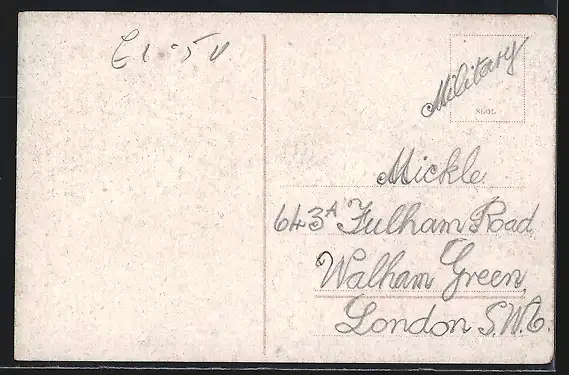 Military
8605
Mickle
643A Fulham Road
Walham Green,
London S.W.6.